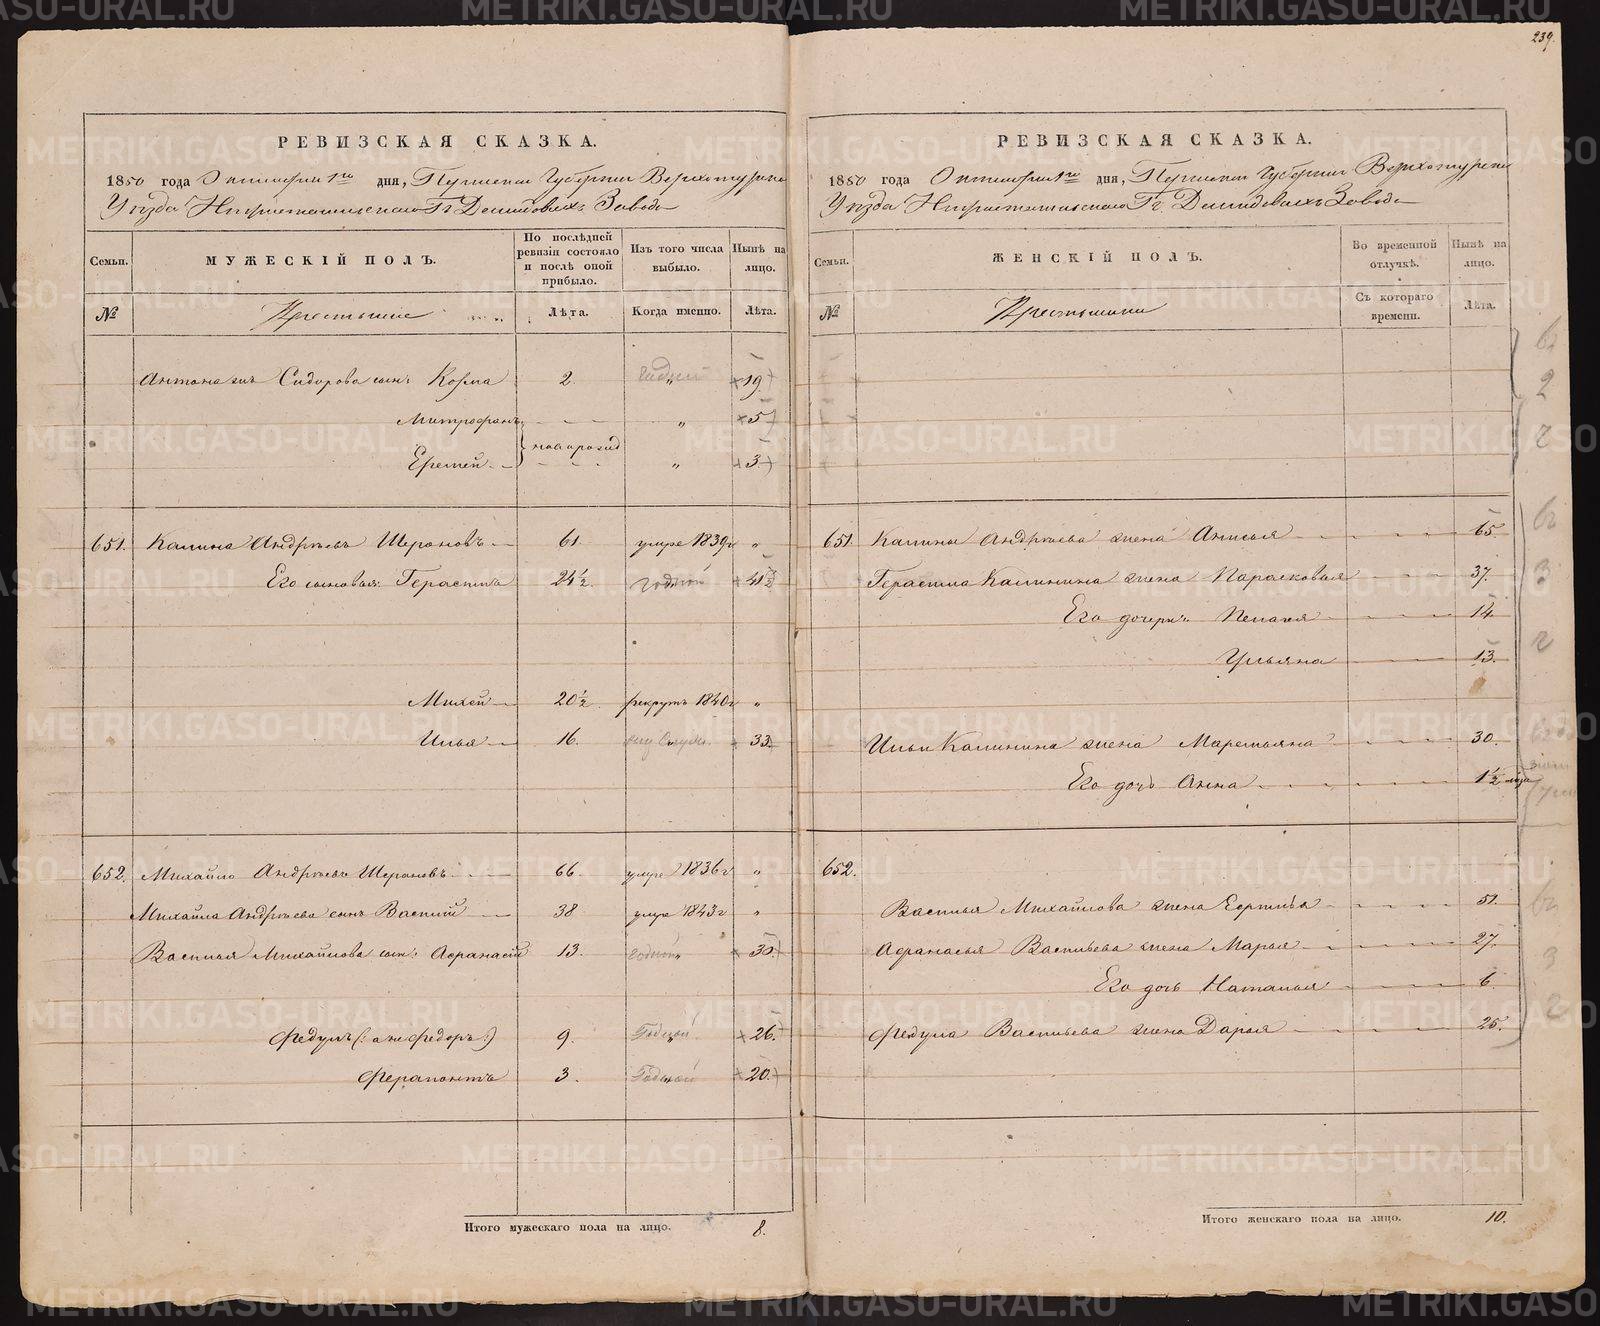 239.
РЕВИЗСКАЯ СКАЗКА.
1850 года Октября 1го дня, Пермской Губернии Верхотурскаго
Уѣзда Нижнетагильскаго Гг. Демидовыхъ Завода
Семьи. МУЖЕСКІЙ ПОЛЪ. По послѣдней ревизіи состояло и послѣ оной прибыло. Изъ того числа выбыло. Нынѣ на лицо.
№ Крестьяне Лѣта. Когда именно. Лѣта.
Сидорова сын: Козма 2. годной 19
Митрофанъ „ 5
новорожд
Еремей „ 3
651. Калина Андреевъ Шероновъ 61 умре 1839г „
Его сыновья: Герасимъ 24½ годной 41½
Михей 20½ рекрутъ 1840г „
Илья 16. 33
652. Михайло Андреевъ Шероновъ 66. умре 1836г „
Михайла Андреева сынъ Василий 38 умре 1843г „
Василья Михайлова сын: Афранасій 13. годной 30
Федулъ (: а не Федоръ:) 9. Годной 26.
Ферапонтъ 3. Годной 20.
Итого мужескаго пола на лицо. 8.
РЕВИЗСКАЯ СКАЗКА.
1850 года Октября 1го дня, Пермской Губернии Верхотурскаго
Уѣзда Нижнетагильскаго Гг. Демидовыхъ Завода
Семьи. ЖЕНСКІЙ ПОЛЪ. Во временной отлучкѣ. Нынѣ на лицо.
№ Крестьянки Съ котораго времени. Лѣта.
651 Калины Андреева жена Анисья 65.
Герасима Калинина жена Парасковья 37.
Его дочери: Пелагея 14.
Ульяна 13.
Ильи Калинина жена Маремьяна 30.
Его дочь Анна 1½
652.
Василья Михайлова жена 51.
Афранасья Васильева жена Марья 27.
Его дочь Наталья 6
Федула Васильева жена Дарья 25.
Итого женскаго пола на лицо. 10.
METRIKI.GASO-URAL.RU